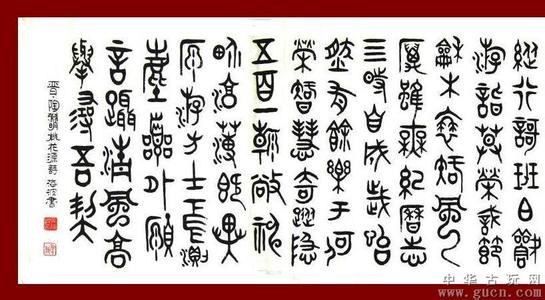 縱行謌班白歡
游詣草榮識節
龢木衰知風
厲雖無紀曆志
三時自成歲怡
然有餘樂于何
勞智慧奇蹤隱
五百一朝敞神
界淳薄既異
游方士焉測
塵囂外願
言躡清風高
舉尋吾契
晋陶淵明桃花源詩 書
中华古玩网
www.gucn.com